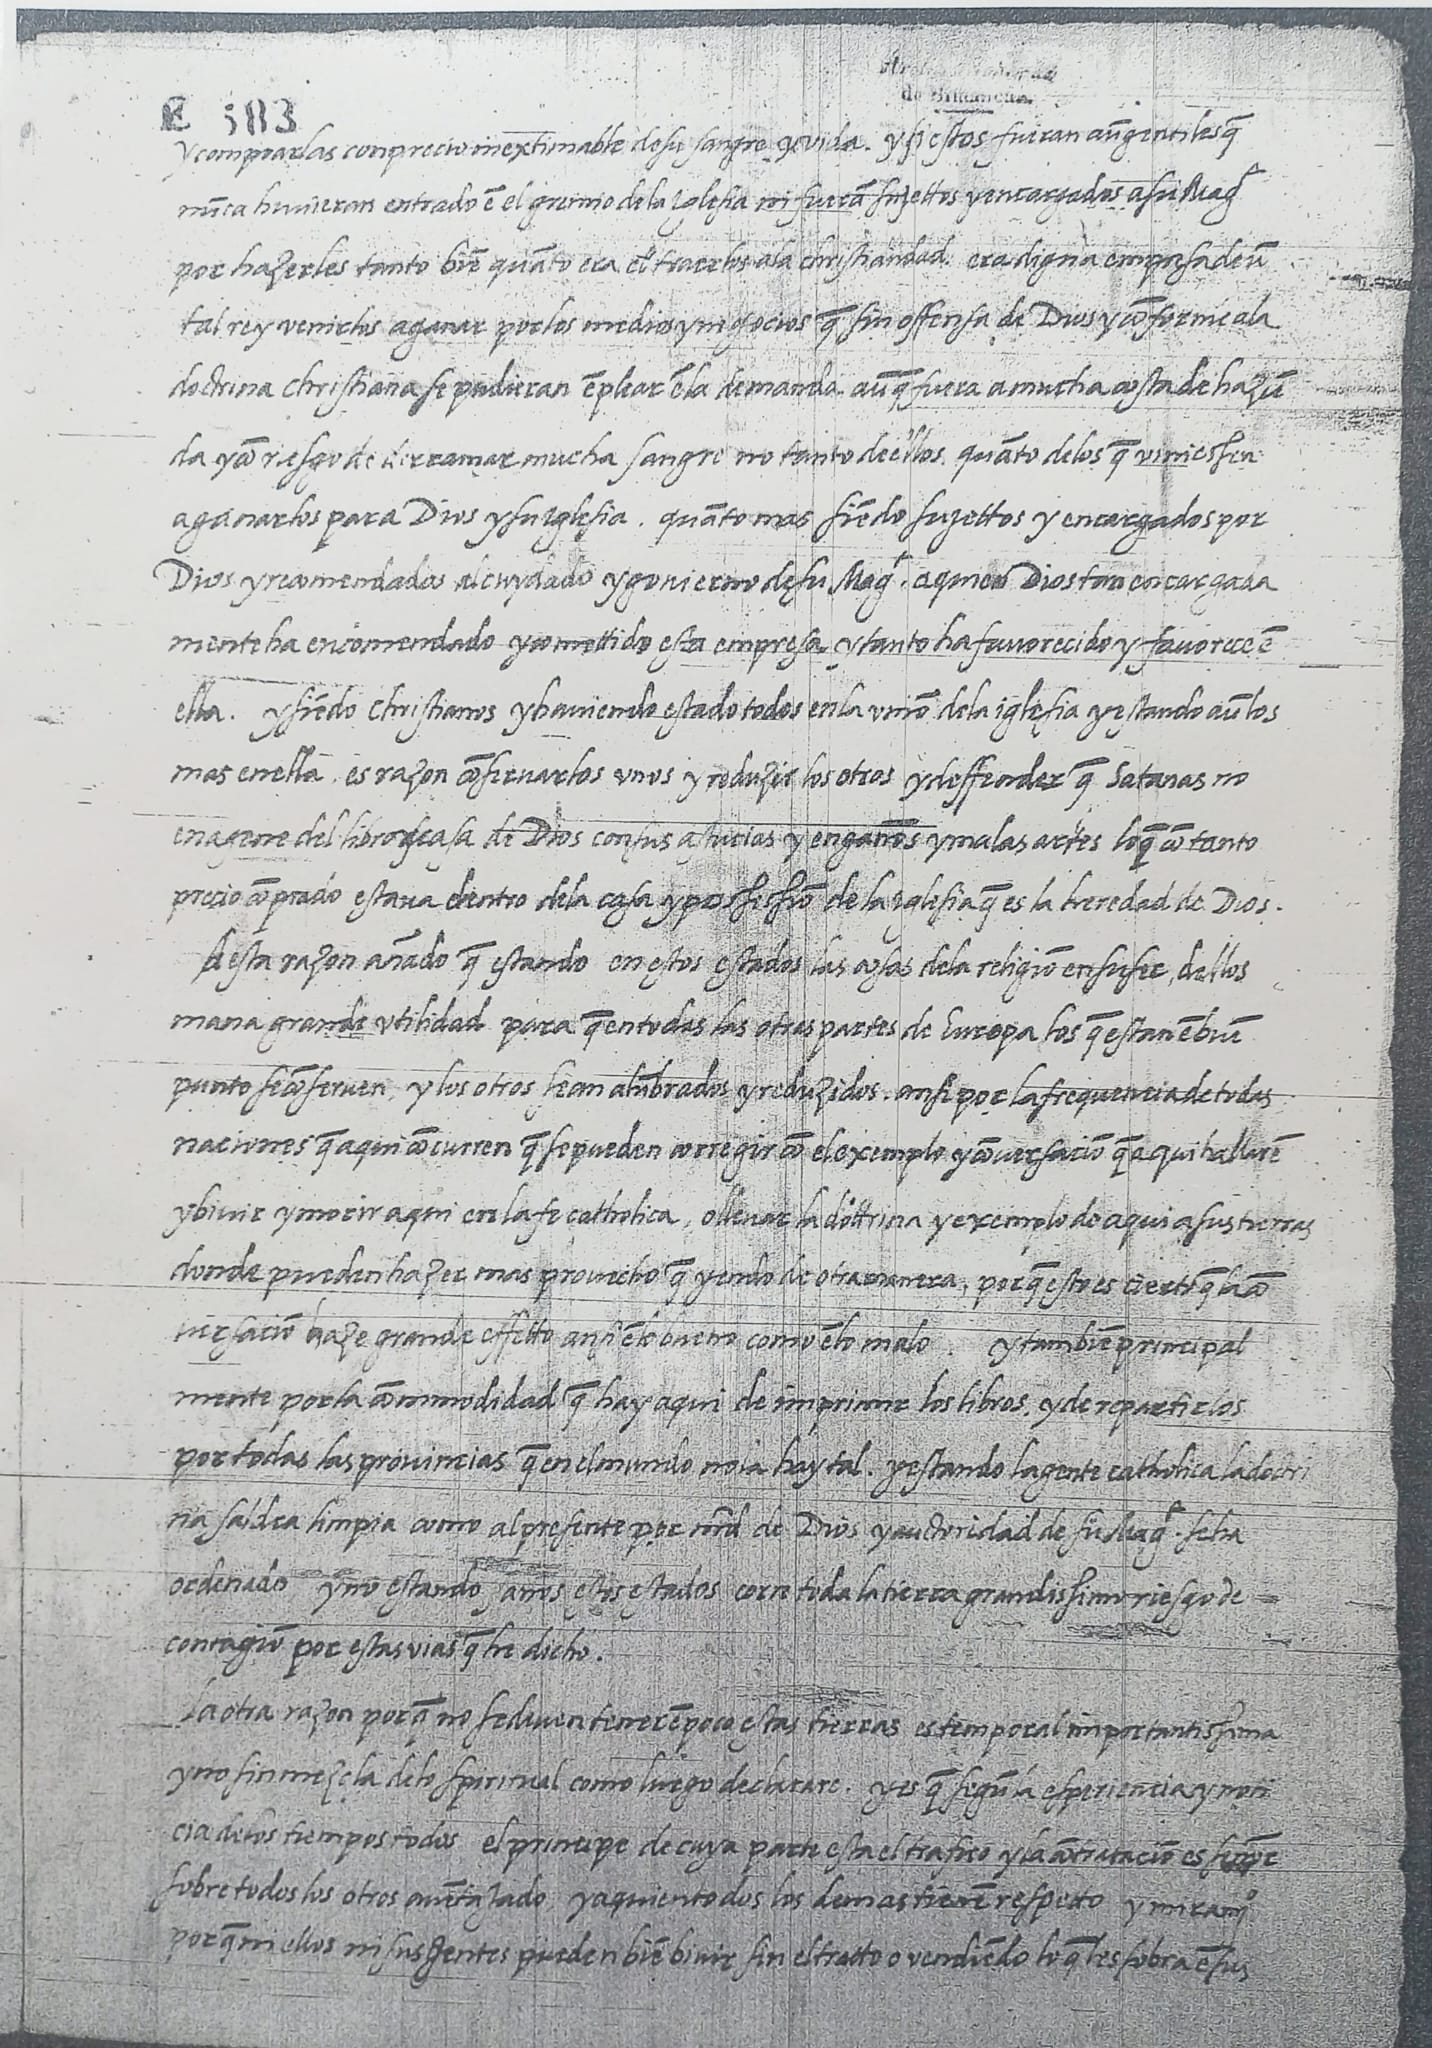 E 583
de Simancas
y comprarlas con precio inextimable de su sangre y vida. y si estos fueran aū gentiles q̄
nūca huvieran entrado ē el gremio de la Iglesia ni fuerā sujettos y encargados a su Magᵗ
por hazerles tanto biē quāto era el traerlos a la christiandad. era digna empresa de ū
tal rey venirlos a ganar por los medios y negocios q̄ sin offensa de Dios y cōforme a la
doctrina christiana se pudieran ēplear ē la demanda. aūq̄ fuera a mucha costa de haziē
da y cō riesgo de derramar mucha sangre no tanto de ellos quāto de los q̄ viniessen
a ganarlos para Dios y su Iglesia. quāto mas siēdo sujettos y encargados por
Dios y recomendados al cuydado y govierno de su Magᵗ. a quien Dios tan encargada
mente ha encomendado y comettido esta empresa, y tanto ha favorecido y favorece ē
ella. y siēdo christianos y haviendo estado todos en la uniō de la iglesia y estando aū los
mas en ella. es razon cōservarlos unos y reduzir los otros y deffender q̄ Satanas no
enagene del libro y casa de Dios con sus astucias y engaños y malas artes lo q̄ cō tanto
precio cōprado estava dentro de la casa y possessiō de la Iglesia q̄ es la heredad de Dios.
A esta razon añado q̄ estando en estos estados las cosas de la religiō en su ser, dellos
mana grande utilidad para q̄ en todas las otras partes de Europa los q̄ estan ē buē
punto se cōserven, y los otros sean alūbrados y reduzidos. ansi por la frequencia de todas
naciones q̄ aqui cōcurren q̄ se pueden corregir cō el exemplo y cōversaciō q̄ aqui hallarē
y bivir y morir aqui en la fe catholica, o llevar la dottrina y exemplo de aqui a sus tierras
donde pueden hazer mas provecho q̄ yendo de otra manera, porq̄ esto es cierto q̄ la cō
versaciō haze grande effetto ansi ē lo bueno como ē lo malo. y tambiē principal
mente por la cōmmodidad q̄ hay aqui de imprimir los libros, y de repartirlos
por todas las provincias q̄ en el mundo no la hay tal. y estando la gente catholica la doctri
na saldra limpia como al presente por mrd de Dios y auctoridad de su Magᵗ. se ha
ordenado y no estando sanos estos estados corre toda la tierra grandissimo riesgo de
contagiō por estas vias q̄ he dicho.
La otra razon porq̄ no se deven tener ē poco estas tierras es temporal importantissima
y no sin mezcla de lo spiritual como luego declarare. y es q̄ segū la esperiencia y noti
cia de los tiempos todos el principe de cuya parte esta el trafico y la cōtrataciō es siempre
sobre todos los otros avētajado, y a quien todos los demas tienē respetto y miramᵗᵒ
porq̄ ni ellos ni sus gentes pueden biē bivir sin el tratto o vendiēdo lo q̄ les sobra ē sus